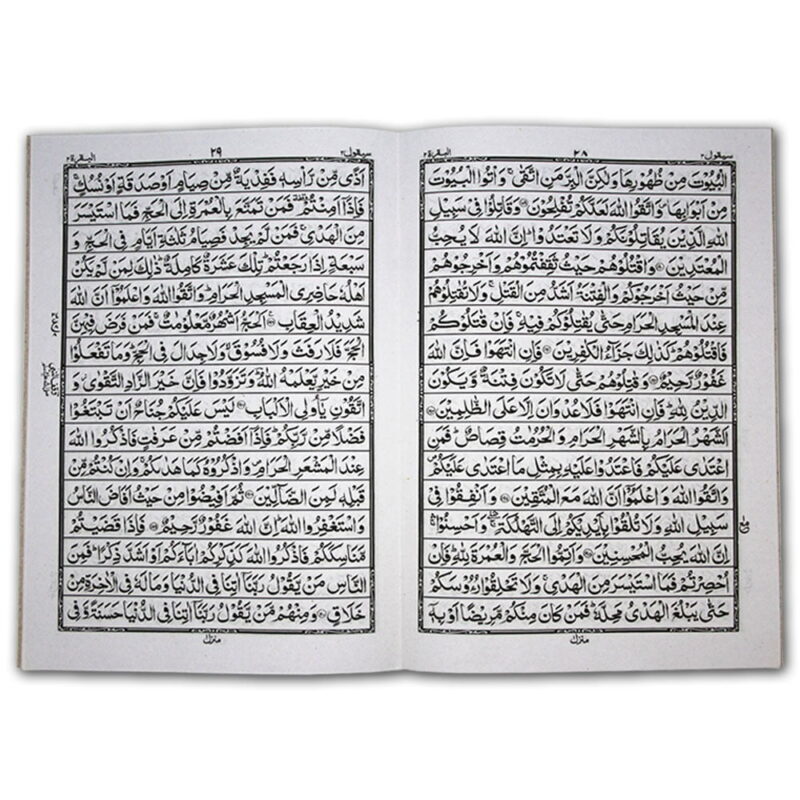 سیقول ٢
٢٨
البقرة ٢
الْبُيُوْتَ مِنْ ظُهُوْرِهَا وَلٰكِنَّ الْبِرَّ مَنِ اتَّقٰى ۚ وَاْتُوا الْبُيُوْتَ
مِنْ اَبْوَابِهَا ۪ وَاتَّقُوا اللّٰهَ لَعَلَّكُمْ تُفْلِحُوْنَ وَقَاتِلُوْا فِيْ سَبِيْلِ
اللّٰهِ الَّذِيْنَ يُقَاتِلُوْنَكُمْ وَلَا تَعْتَدُوْا ؕ اِنَّ اللّٰهَ لَا يُحِبُّ
الْمُعْتَدِيْنَ وَاقْتُلُوْهُمْ حَيْثُ ثَقِفْتُمُوْهُمْ وَاَخْرِجُوْهُمْ
مِّنْ حَيْثُ اَخْرَجُوْكُمْ وَالْفِتْنَةُ اَشَدُّ مِنَ الْقَتْلِ ۚ وَلَا تُقٰتِلُوْهُمْ
عِنْدَ الْمَسْجِدِ الْحَرَامِ حَتّٰى يُقٰتِلُوْكُمْ فِيْهِ ۚ فَاِنْ قٰتَلُوْكُمْ
فَاقْتُلُوْهُمْ ؕ كَذٰلِكَ جَزَآءُ الْكٰفِرِيْنَ فَاِنِ انْتَهَوْا فَاِنَّ اللّٰهَ
غَفُوْرٌ رَّحِيْمٌ وَقٰتِلُوْهُمْ حَتّٰى لَا تَكُوْنَ فِتْنَةٌ وَّيَكُوْنَ
الدِّيْنُ لِلّٰهِ ؕ فَاِنِ انْتَهَوْا فَلَا عُدْوَانَ اِلَّا عَلَى الظّٰلِمِيْنَ
اَلشَّهْرُ الْحَرَامُ بِالشَّهْرِ الْحَرَامِ وَالْحُرُمٰتُ قِصَاصٌ ؕ فَمَنِ
اعْتَدٰى عَلَيْكُمْ فَاعْتَدُوْا عَلَيْهِ بِمِثْلِ مَا اعْتَدٰى عَلَيْكُمْ
وَاتَّقُوا اللّٰهَ وَاعْلَمُوْۤا اَنَّ اللّٰهَ مَعَ الْمُتَّقِيْنَ وَاَنْفِقُوْا فِيْ
سَبِيْلِ اللّٰهِ وَلَا تُلْقُوْا بِاَيْدِيْكُمْ اِلَى التَّهْلُكَةِ ۚ وَاَحْسِنُوْا ۚ
اِنَّ اللّٰهَ يُحِبُّ الْمُحْسِنِيْنَ وَاَتِمُّوا الْحَجَّ وَالْعُمْرَةَ لِلّٰهِ ؕ فَاِنْ
اُحْصِرْتُمْ فَمَا اسْتَيْسَرَ مِنَ الْهَدْيِ ۚ وَلَا تَحْلِقُوْا رُءُوْسَكُمْ
حَتّٰى يَبْلُغَ الْهَدْيُ مَحِلَّهٗ ؕ فَمَنْ كَانَ مِنْكُمْ مَّرِيْضًا اَوْ بِهٖۤ
منزل
سیقول ٢
٢٩
البقرة ٢
اَذًى مِّنْ رَّاْسِهٖ فَفِدْيَةٌ مِّنْ صِيَامٍ اَوْ صَدَقَةٍ اَوْ نُسُكٍ ۚ
فَاِذَاۤ اَمِنْتُمْ ۥ فَمَنْ تَمَتَّعَ بِالْعُمْرَةِ اِلَى الْحَجِّ فَمَا اسْتَيْسَرَ
مِنَ الْهَدْيِ ۚ فَمَنْ لَّمْ يَجِدْ فَصِيَامُ ثَلٰثَةِ اَيَّامٍ فِي الْحَجِّ وَ
سَبْعَةٍ اِذَا رَجَعْتُمْ ؕ تِلْكَ عَشَرَةٌ كَامِلَةٌ ؕ ذٰلِكَ لِمَنْ لَّمْ يَكُنْ
اَهْلُهٗ حَاضِرِي الْمَسْجِدِ الْحَرَامِ ؕ وَاتَّقُوا اللّٰهَ وَاعْلَمُوْۤا اَنَّ اللّٰهَ
شَدِيْدُ الْعِقَابِ اَلْحَجُّ اَشْهُرٌ مَّعْلُوْمٰتٌ ۚ فَمَنْ فَرَضَ فِيْهِنَّ
الْحَجَّ فَلَا رَفَثَ وَلَا فُسُوْقَ ۙ وَلَا جِدَالَ فِي الْحَجِّ ؕ وَمَا تَفْعَلُوْا
مِنْ خَيْرٍ يَّعْلَمْهُ اللّٰهُ ؕ وَتَزَوَّدُوْا فَاِنَّ خَيْرَ الزَّادِ التَّقْوٰى ۫ وَ
اتَّقُوْنِ يٰۤاُولِي الْاَلْبَابِ لَيْسَ عَلَيْكُمْ جُنَاحٌ اَنْ تَبْتَغُوْا
فَضْلًا مِّنْ رَّبِّكُمْ ؕ فَاِذَاۤ اَفَضْتُمْ مِّنْ عَرَفٰتٍ فَاذْكُرُوا اللّٰهَ
عِنْدَ الْمَشْعَرِ الْحَرَامِ ۪ وَاذْكُرُوْهُ كَمَا هَدٰىكُمْ ۚ وَاِنْ كُنْتُمْ مِّنْ
قَبْلِهٖ لَمِنَ الضَّآلِّيْنَ ثُمَّ اَفِيْضُوْا مِنْ حَيْثُ اَفَاضَ النَّاسُ
وَاسْتَغْفِرُوا اللّٰهَ ؕ اِنَّ اللّٰهَ غَفُوْرٌ رَّحِيْمٌ فَاِذَا قَضَيْتُمْ
مَّنَاسِكَكُمْ فَاذْكُرُوا اللّٰهَ كَذِكْرِكُمْ اٰبَآءَكُمْ اَوْ اَشَدَّ ذِكْرًا ؕ فَمِنَ
النَّاسِ مَنْ يَّقُوْلُ رَبَّنَاۤ اٰتِنَا فِي الدُّنْيَا وَمَا لَهٗ فِي الْاٰخِرَةِ مِنْ
خَلَاقٍ وَمِنْهُمْ مَّنْ يَّقُوْلُ رَبَّنَاۤ اٰتِنَا فِي الدُّنْيَا حَسَنَةً وَّفِي
منزل